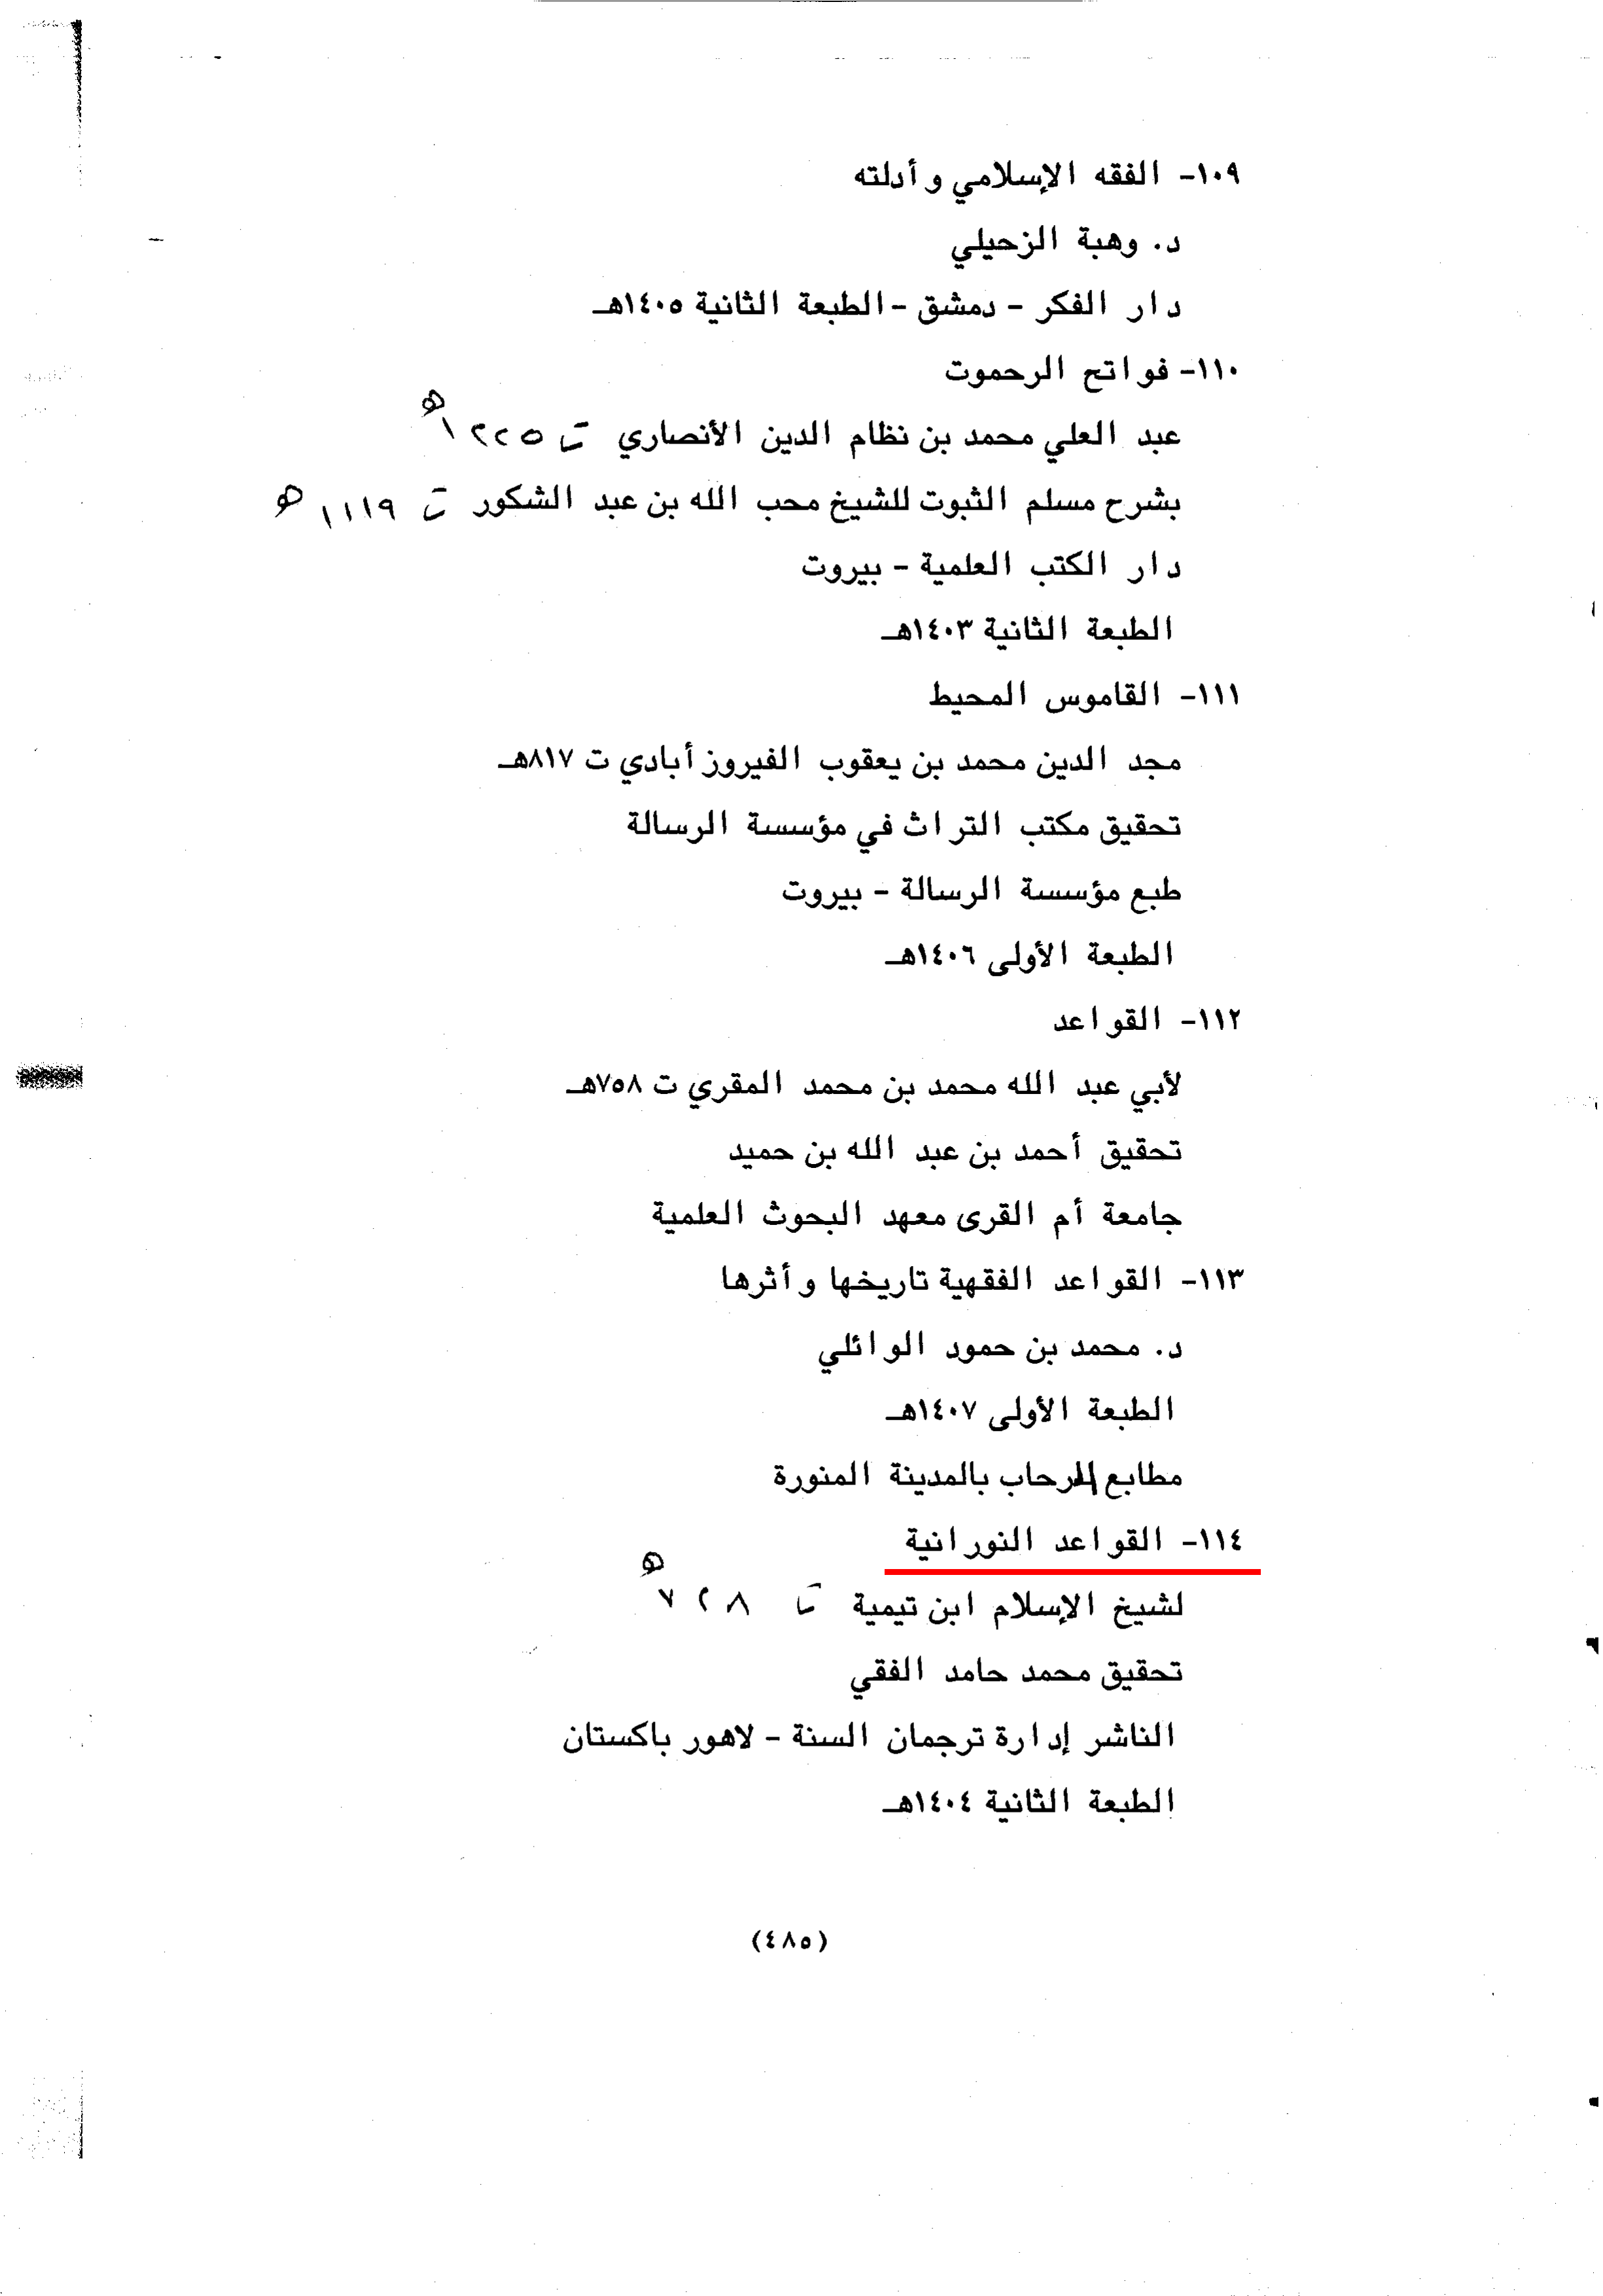 ١٠٩- الفقه الإسلامي وأدلته
د. وهبة الزحيلي
دار الفكر - دمشق - الطبعة الثانية ١٤٠٥هـ
١١٠- فواتح الرحموت
عبد العلي محمد بن نظام الدين الأنصاري ت ١٢٢٥ هـ
بشرح مسلم الثبوت للشيخ محب الله بن عبد الشكور ت ١١١٩ هـ
دار الكتب العلمية - بيروت
الطبعة الثانية ١٤٠٣هـ
١١١- القاموس المحيط
مجد الدين محمد بن يعقوب الفيروز أبادي ت ٨١٧هـ
تحقيق مكتب التراث في مؤسسة الرسالة
طبع مؤسسة الرسالة - بيروت
الطبعة الأولى ١٤٠٦هـ
١١٢- القواعد
لأبي عبد الله محمد بن محمد المقري ت ٧٥٨هـ
تحقيق أحمد بن عبد الله بن حميد
جامعة أم القرى معهد البحوث العلمية
١١٣- القواعد الفقهية تاريخها وأثرها
د. محمد بن حمود الوائلي
الطبعة الأولى ١٤٠٧هـ
مطابع الرحاب بالمدينة المنورة
١١٤- القواعد النورانية
لشيخ الإسلام ابن تيمية ت ٧٢٨ هـ
تحقيق محمد حامد الفقي
الناشر إدارة ترجمان السنة - لاهور باكستان
الطبعة الثانية ١٤٠٤هـ
(٤٨٥)